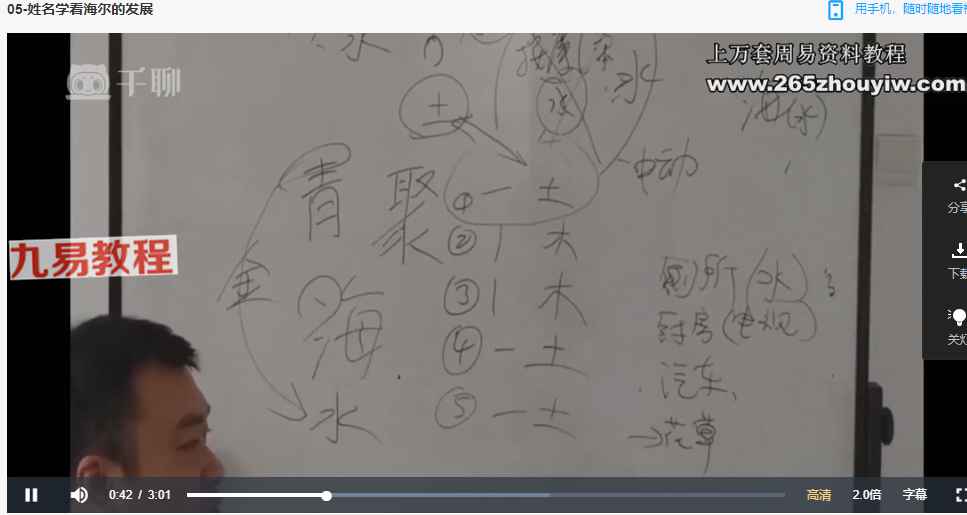 05-姓名学看海尔的发展
用手机，随时随地看
千聊
上万套周易资料教程
www.265zhouyiw.com
水
土
水
海(水)
中动
青 聚 ① 一 土
② | 木
九易教程
金
海
③ | 木
④ 一 土
水
⑤ 一 土
厕所(水)
厨房(电视)
汽车、
→花草
分享
下载
关灯
0:42 / 3:01
高清
2.0倍
字幕